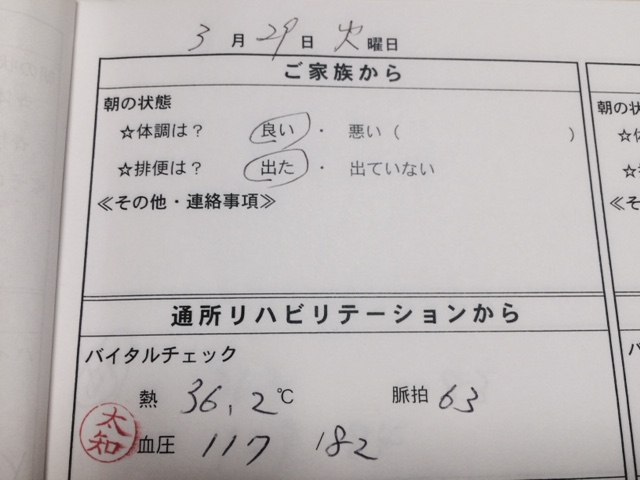 3月29日 火曜日
ご家族から
朝の状態
☆体調は？ 良い ・ 悪い（ ）
☆排便は？ 出た ・ 出ていない
≪その他・連絡事項≫
通所リハビリテーションから
バイタルチェック
熱 36.2℃ 脈拍 63
太知
血圧 117 /82
朝の
☆
☆
≪そ